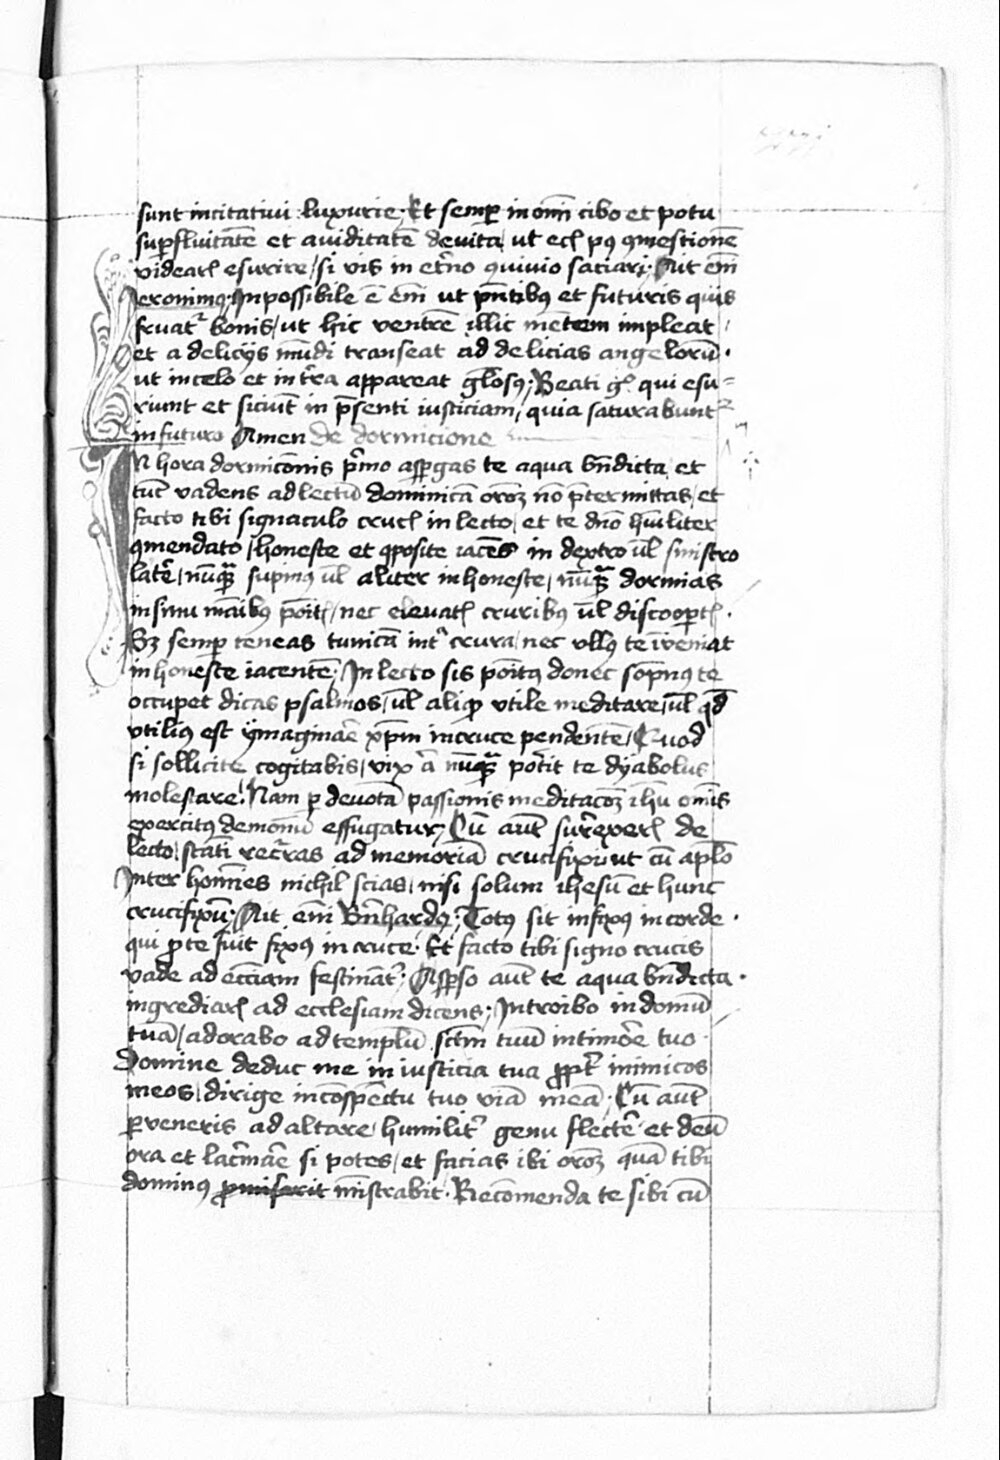 sunt incitativi luxurie. Et semp in om̄i cibo et potu
supfluitatē et aviditatē devita, ut etc̄ pꝯ ꝯmestionē
videar̄ esurire / si vis in et̄no ꝯvivio saciari. Ait em̄
Jeronimꝯ. Inpossibile ē em̄ ut pn̄tibꝯ et futuris quis
fruat᷑ bonis / ut hic ventrē illic mētem impleat /
et a delicijs mūdi transeat ad delicias angelorū.
ut in celo et in tr̄a appareat gl̄osꝯ. Beati gͥ qui esu=
riunt et siciūt in p̄senti iusticiam / quia saturabunt᷑
in futuro Amen de dormicione
In hora dormicōnis pͥmo aspgas te aqua bn̄dicta et
tūc vadens ad lectū dominicā orōꝫ nō p̄termittas / et
facto tibi signaculo cruc̄ in lecto / et te dn̄o hūiliter
ꝯmendato / honeste et ꝯposite iacēs in dextro ul̄ sinistro
latē / nūꝙᷓ supinꝯ ul̄ aliter inhoneste / nūꝙᷓ dormias
in sinu māibꝯ poīt̄ / nec elevat̄ cruribꝯ ul̄ discoopt̄.
Sꝫ semp teneas tunicā intᷣ crura / nec ullꝯ te īveniat
inhoneste iacentē. In lecto sis poītꝯ donec sōpnꝯ te
occupet dicas psalmos / ul̄ aliqͥd utile meditare / ul̄ qd̄
utiliꝯ est ymaginār xp̄m in cruce pendentē / Quod
si sollicite cogitabis / vix ā nūꝙᷓ potīt te dyabolus
molestare. Nam p devotā passionis meditacōꝫ ih̄u om̄is
exercitꝯ demonū effugatur. Cū aūt surexer̄ de
lecto statī rect̄as ad memoriā crucifixū ut cū apl̄o
Inter homīes nichil scias / nisi solum ihesū et hunc
crucifixū. Ait em̄ Bn̄hardꝯ. Totꝯ sit infixꝯ in corde.
qui ꝓ te fuit fixꝯ in cruce. Et facto tibi signo crucis
vade ad ecc̄iam festināt᷑. Aspso aūt te aqua bn̄dicta.
ingrediar̄ ad ecclesiam dicens. Introibo in domū
tuā / adorabo ad templū sc̄tm tuū in timōe tuo.
Domine deduc me in iusticia tua ꝓpt̄ inimicos
meos / dirige in cōspectu tuo viā meā. Cū aūt
pveneris ad altare / humilit᷑ genu flectē et deū
ora et lacrimāe si potes / et facias ibi orōꝫ quā tibi
dominꝯ mīstrabit. Recōmenda te sibi cū